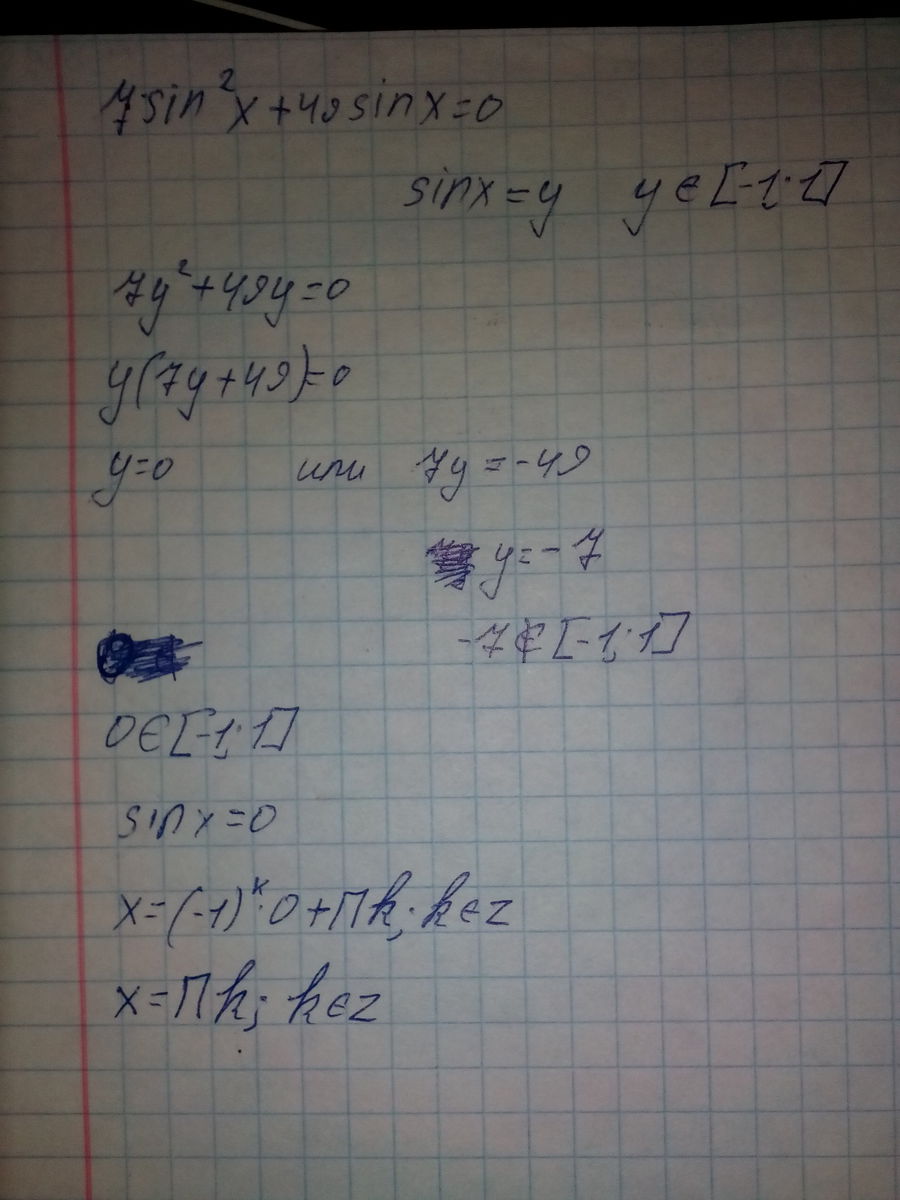 7sin²x+49sinx=0
sinx=y y∈[-1;1]
7y²+49y=0
y(7y+49)=0
y=0 или 7y=-49
y=-7
-7∉[-1;1]
0∈[-1;1]
sinx=0
x=(-1)ᵏ·0+Пk; k∈z
x=Пk; k∈z